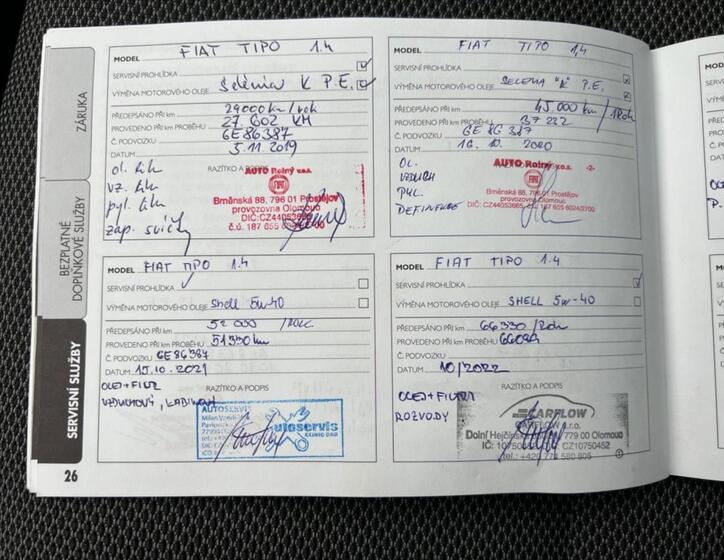 ZÁRUKA
BEZPLATNÉ
DOPLŇKOVÉ SLUŽBY
SERVISNÍ SLUŽBY
MODEL FIAT TIPO 1.4
SERVISNÍ PROHLÍDKA
VÝMĚNA MOTOROVÉHO OLEJE Selénia K P.E.
PŘEDEPSÁNO PŘI km 29000 km/rok
PROVEDENO PŘI km PRŮBĚHU 27 602 KM
Č. PODVOZKU GE86387
DATUM 5.11.2019
RAZÍTKO A PODPIS
ol. filtr
vz. filtr
pyl. filtr
zap. svíčky
AUTO Rolný v.o.s.
FIAT
Brněnská 88, 796 01 Prostějov
provozovna Olomouc
MODEL FIAT TIPO 1,4
SERVISNÍ PROHLÍDKA
VÝMĚNA MOTOROVÉHO OLEJE SELENIA "K" P.E.
PŘEDEPSÁNO PŘI km 45.000 km/1Rok
PROVEDENO PŘI km PRŮBĚHU 37 232
Č. PODVOZKU GE 86 387
DATUM 16. 10. 2020
RAZÍTKO A PODPIS
OL.
VZDUCH
PYL.
AUTO Rolný v.o.s. -2-
FIAT
Brněnská 88, 796 01 Prostějov
provozovna Olomouc
MODEL FIAT TIPO 1.4
SERVISNÍ PROHLÍDKA
VÝMĚNA MOTOROVÉHO OLEJE Shell 5w-40
PŘEDEPSÁNO PŘI km 52 000 /ROK
PROVEDENO PŘI km PRŮBĚHU 51330 km
Č. PODVOZKU GE86387
DATUM 15.10.2021
RAZÍTKO A PODPIS
OLEJ+FILTR
VZDUCHOVÝ, KABINOVÝ
AUTOSERVIS
autoservis
MODEL FIAT TIPO 1.4
SERVISNÍ PROHLÍDKA
VÝMĚNA MOTOROVÉHO OLEJE SHELL 5w-40
PŘEDEPSÁNO PŘI km 66330 /Rok
PROVEDENO PŘI km PRŮBĚHU
Č. PODVOZKU
DATUM 10/2022
RAZÍTKO A PODPIS
OLEJ+FILTRY
ROZVODY
CARFLOW
CARFLOW s.r.o.
779 00 Olomouc
CZ10750452
26